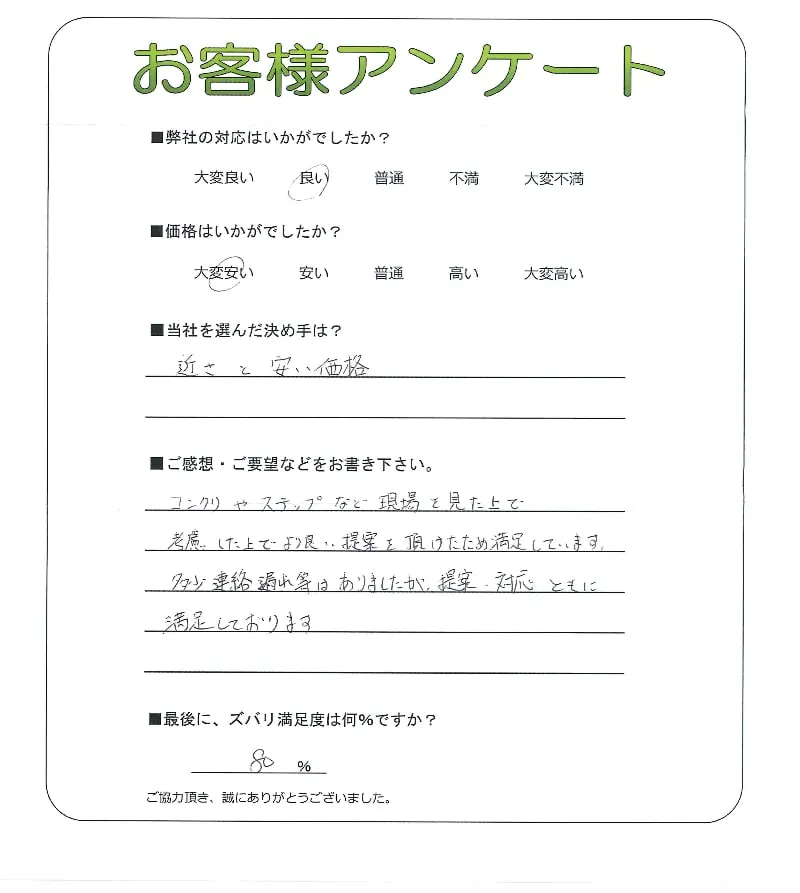 お客様アンケート
■弊社の対応はいかがでしたか？
大変良い 良い 普通 不満 大変不満
■価格はいかがでしたか？
大変安い 安い 普通 高い 大変高い
■当社を選んだ決め手は？
近さと安い価格
■ご感想・ご要望などをお書き下さい。
コンクリやステップなど現場を見た上で
考慮した上でより良い提案を頂けたため満足しています。
多少連絡漏れ等はありましたが、提案・対応ともに
満足しております
■最後に、ズバリ満足度は何%ですか？
80 %
ご協力頂き、誠にありがとうございました。